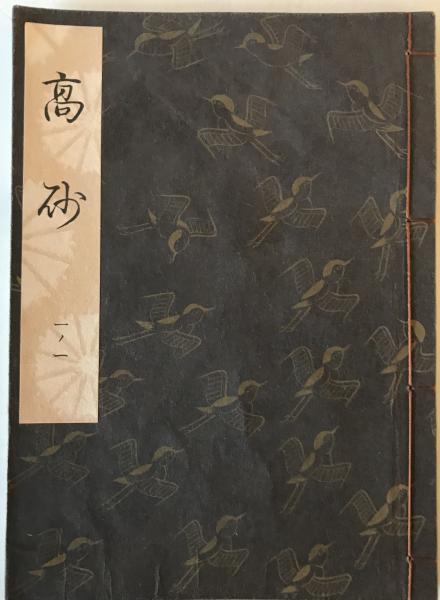 高砂
一ノ一